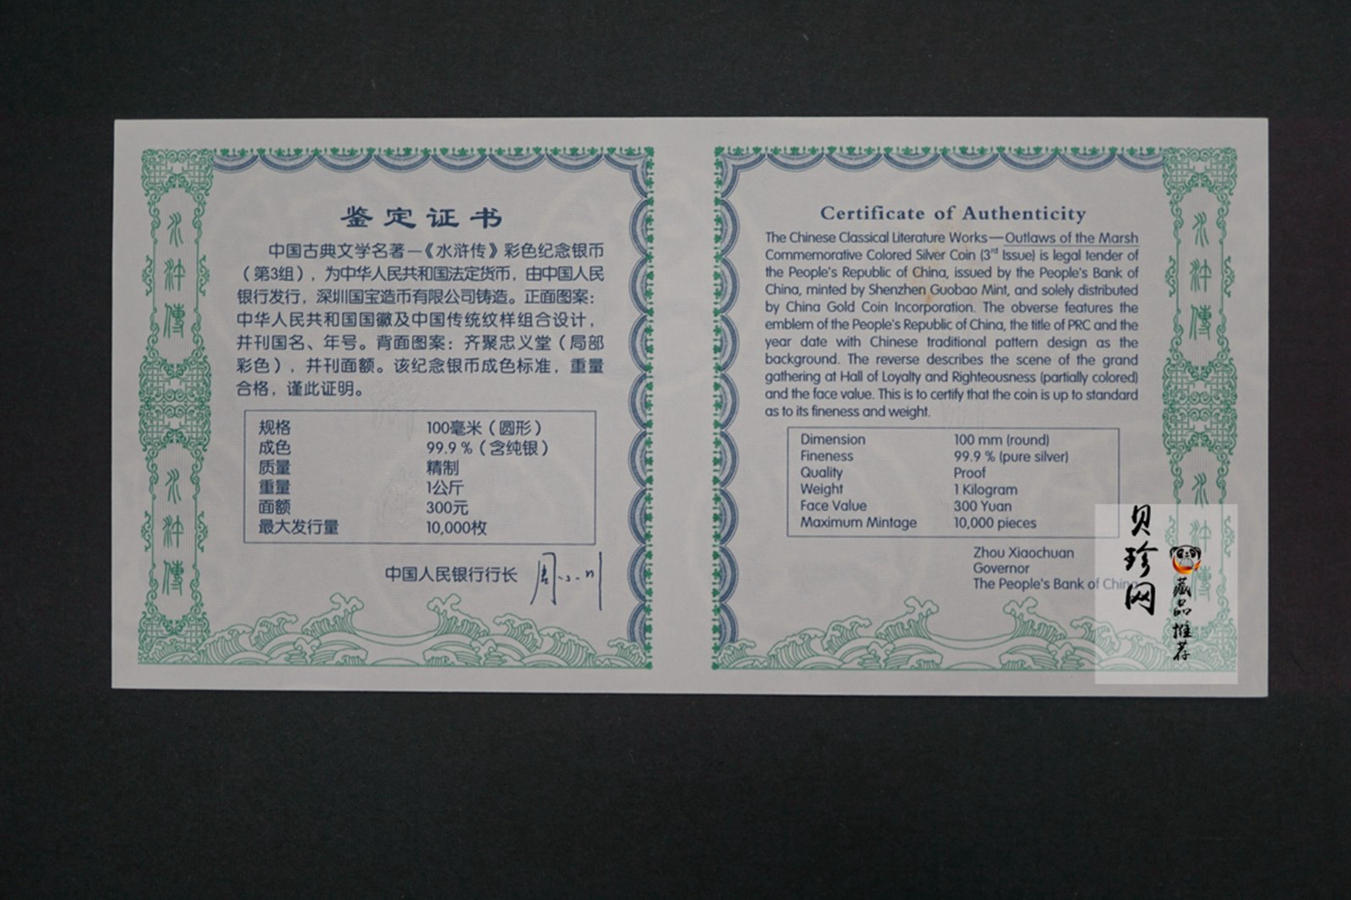 水浒傳
水浒傳
鉴定证书
中国古典文学名著—《水浒传》彩色纪念银币
（第3组），为中华人民共和国法定货币，由中国人民
银行发行，深圳国宝造币有限公司铸造。正面图案：
中华人民共和国国徽及中国传统纹样组合设计，
并刊国名、年号。背面图案：齐聚忠义堂（局部
彩色），并刊面额。该纪念银币成色标准，重量
合格，谨此证明。
规格 100毫米（圆形）
成色 99.9%（含纯银）
质量 精制
重量 1公斤
面额 300元
最大发行量 10,000枚
中国人民银行行长
Certificate of Authenticity
The Chinese Classical Literature Works—Outlaws of the Marsh
Commemorative Colored Silver Coin (3rd Issue) is legal tender of
the People's Republic of China, issued by the People's Bank of
China, minted by Shenzhen Guobao Mint, and solely distributed
by China Gold Coin Incorporation. The obverse features the
emblem of the People's Republic of China, the title of PRC and the
year date with Chinese traditional pattern design as the
background. The reverse describes the scene of the grand
gathering at Hall of Loyalty and Righteousness (partially colored)
and the face value. This is to certify that the coin is up to standard
as to its fineness and weight.
Dimension 100 mm (round)
Fineness 99.9 % (pure silver)
Quality Proof
Weight 1 Kilogram
Face Value 300 Yuan
Maximum Mintage 10,000 pieces
Zhou Xiaochuan
Governor
The People's Bank of China
水浒傳
水浒傳
贝珍网
藏品推荐